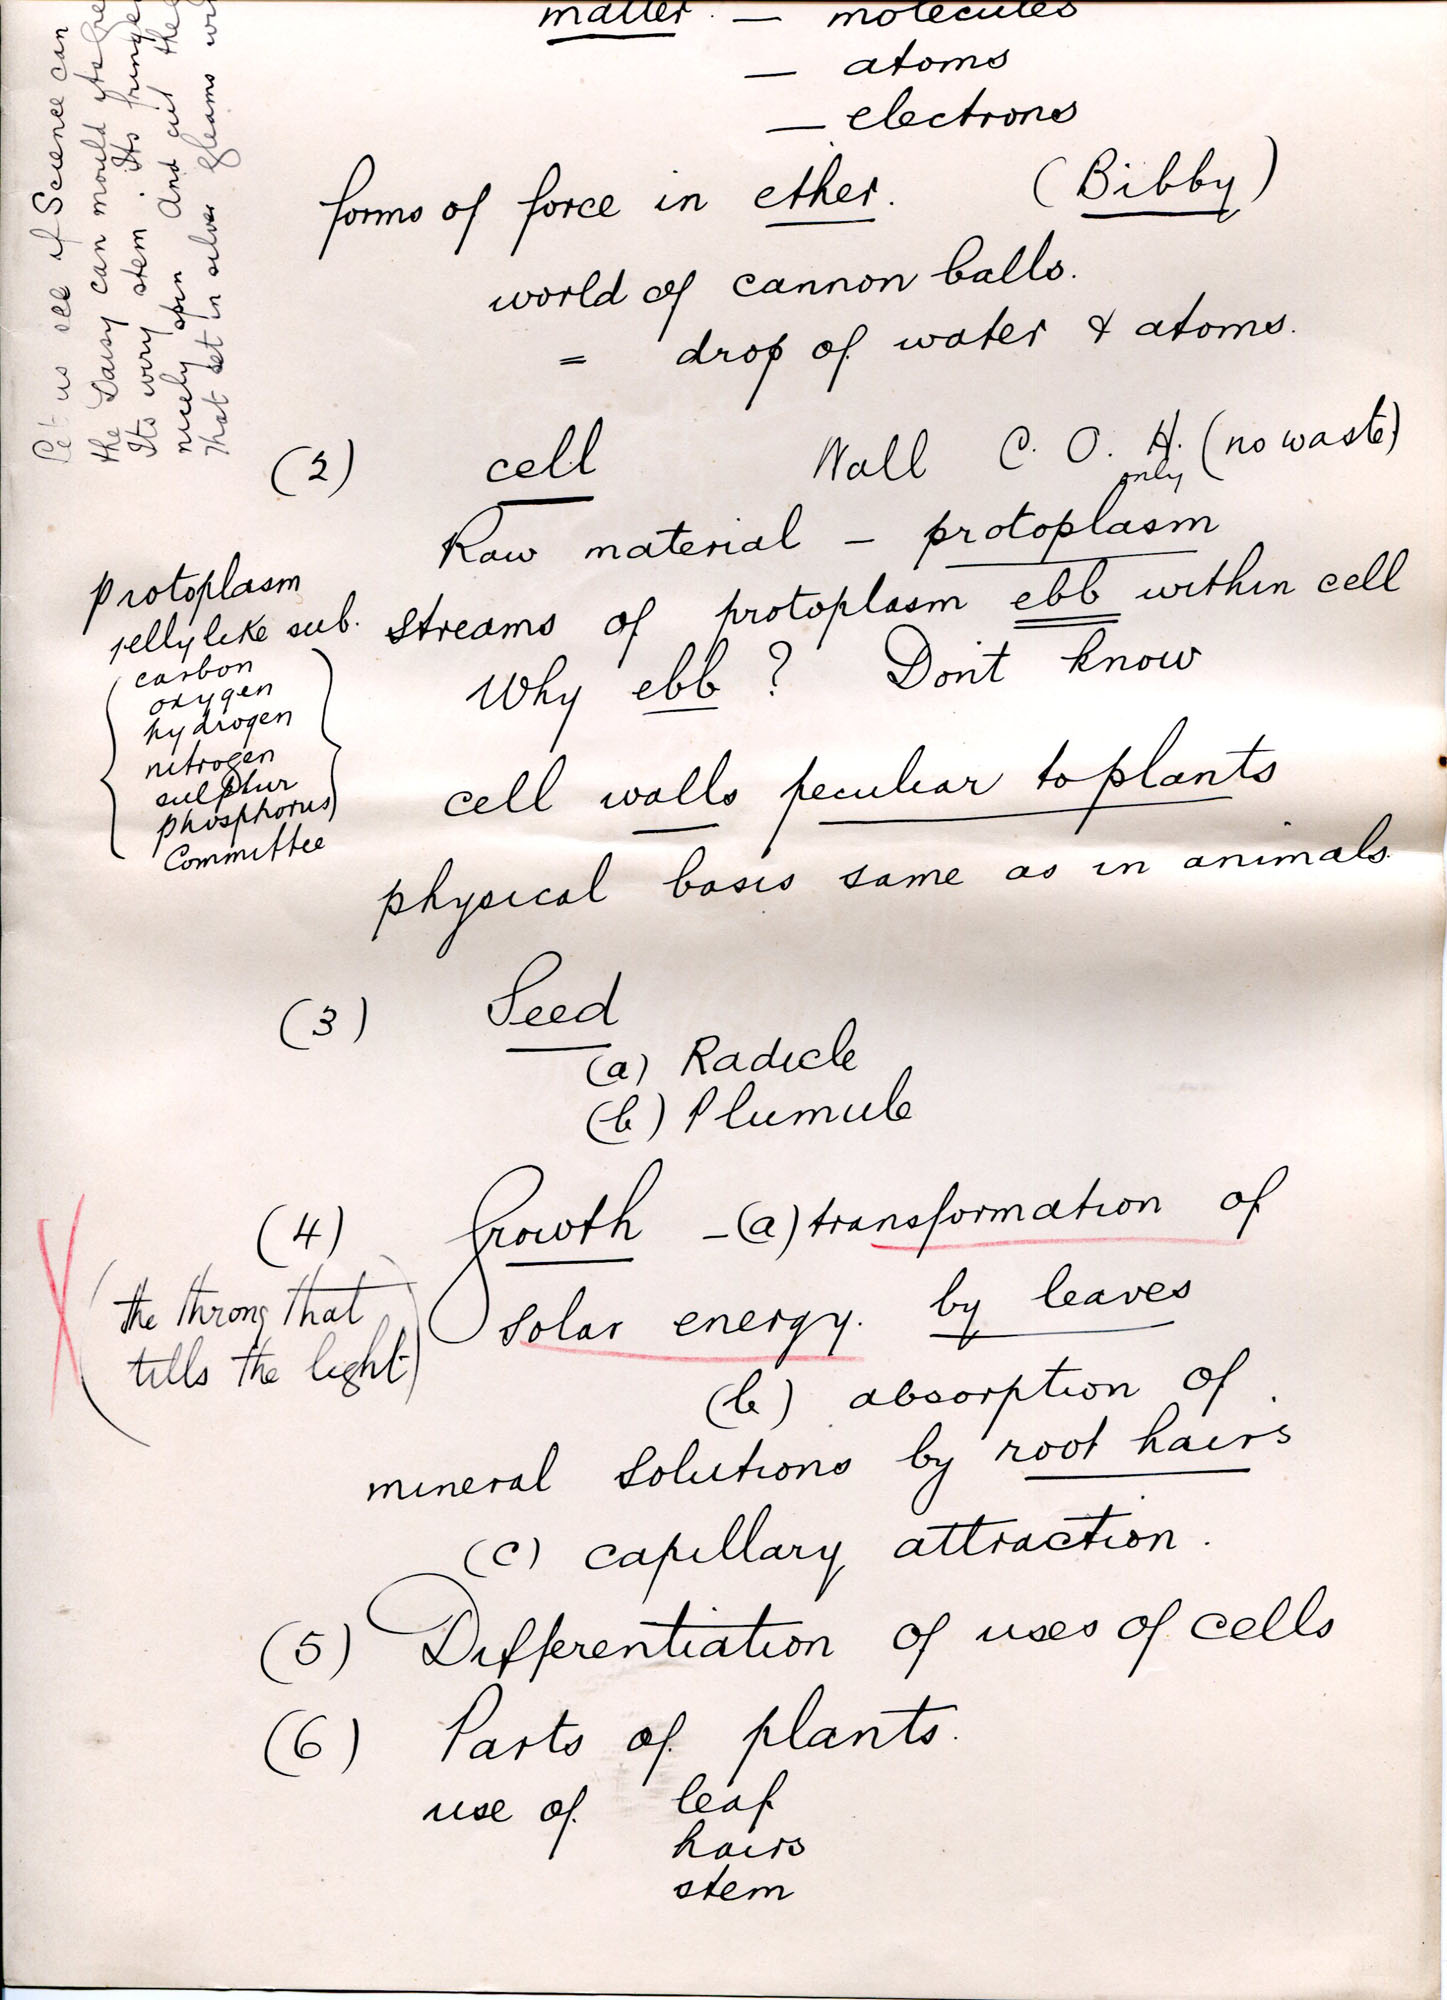 matter. — molecules
— atoms
— electrons
forms of force in ether. (Bibby)
world of cannon balls.
= drop of water & atoms.
Let us see if Science can
the Daisy can mould its
Its wiry stem. Its
nicely spin And cut the
That set in silver gleams
(2) cell Wall C. O. H. (no waste)
only
Raw material – protoplasm
streams of protoplasm ebb within cell
Why ebb? Don't know
Protoplasm
jelly like sub.
carbon
oxygen
hydrogen
nitrogen
sulphur
phosphorus
Committee
cell walls peculiar to plants
physical basis same as in animals.
(3) Seed
(a) Radicle
(b) Plumule
(4) Growth – (a) transformation of
solar energy. by leaves
(the throng that
tills the light)
(b) absorption of
mineral solutions by root hairs
(c) capillary attraction.
(5) Differentiation of uses of cells
(6) Parts of plants.
use of leaf
hairs
stem